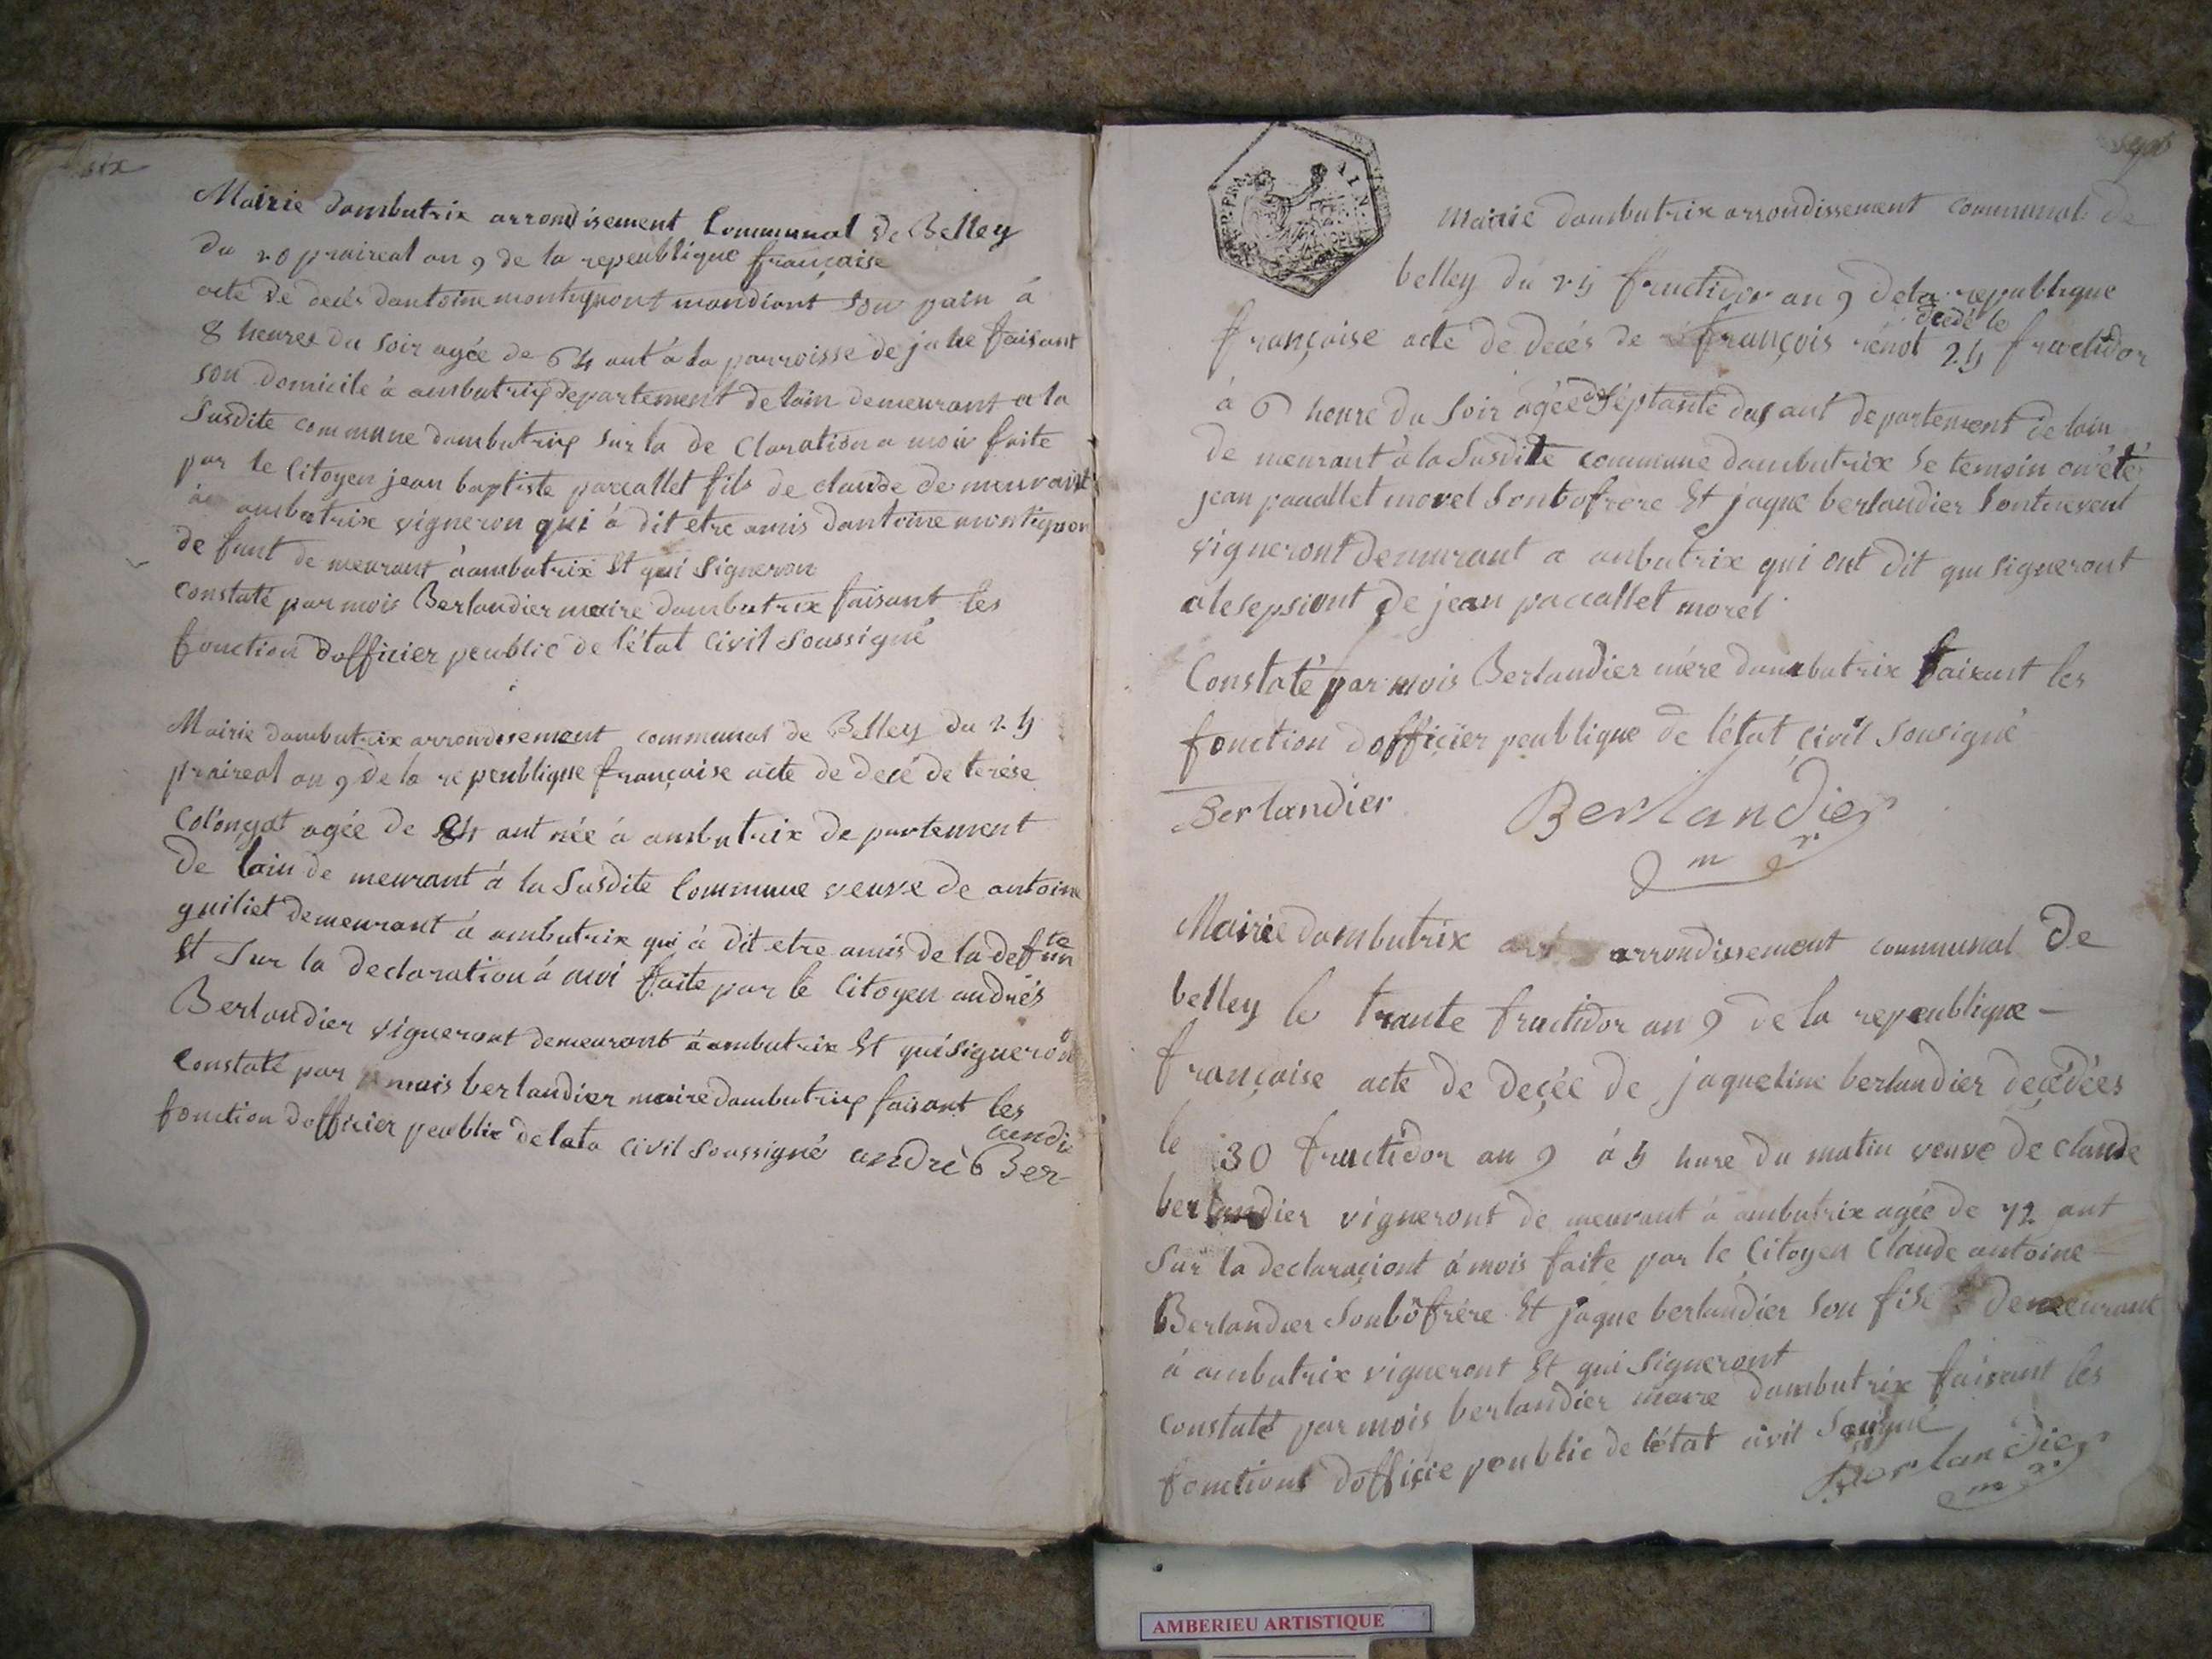 six
Mairie dambutrix arrondisement Communal de Belley
du 20 praireal an 9 de la repeublique française
acte de decés dantoine montignont mandiant son pain à
8 heures du soir agée de 64 ant à la parroisse de faisant
son domicile à ambutrix departement de lain demeurant a la
Susdite commune dambutrix sur la de Claration a moiv faite
par le Citoyen jean baptiste paccallet fils de claude de meurant
à ambutrix vigneron qui à dit etre amis dantoine montignon
de funt de meurant à ambutrix Et qui Signeron
Constaté par mois Berlandier maire dambutrix faisant les
fonction dofficier peublic de l'état Civil Soussigné
Mairie dambutrix arrondisement communal de Belley du 24
praireal an 9 de la re peublique française acte de decé de terése
Colongat agée de 84 ant née à ambutrix de partement
de lain de meurant à la Susdite Commune veuve de antoine
guiliet demeurant à ambutrix qui à dit etre amis de la defunte
Et Sur la declaration à moi faite par le Citoyen andrés
Berlandier vigneront demeurant à ambutrix Et qui signeron
Constaté par mois berlandier maire dambutrix faisant les
fonction dofficier peublic de lata Civil Soussigné andrè Ber-
landie
Sept
R.P. FRA
AIN
Mairie dambutrix arrondissement communal de
belley du 25 fructidor an 9 de la republique
française acte de decés de françois renot decedé le 24 fructidor
à 6 heure du Soir agée de Séptante dus ant departement de lain
de meurant à la Susdite commune dambutrix Le temoin on été
jean paccallet morel Sont bofrere Et jaque berlandier Sont neveut
vigneront demurant a anbutrix qui ont dit que signeront
a lesepsiont de jean paccallet morel
Constaté par mois Berlandier mère dambutrix faisant les
fonction dofficier peublique de l'état Civil Sousigné
Berlandier Berlandier
m r
Mairie dambutrix arrondissement communal De
belley le trante fructidor an 9 de la repeublique -
française acte de deçée de jaqueline berlandier deçédées
le 30 fructidor an 9 à 5 hure du matin veuve de claude
berlandier vigneront de meurant à ambutrix agée de 72 ant
Sur la declaraçiont à mois faite par le Çitoyen Claude antoine
Berlandier Son bôfrére Et jaque berlandier Son fils demeurant
à ambutrix vigneront Et qui Signeront
Constaté par mois berlandier maire dambutrix faisant les
fonctions doffiçie peublic de létat civil Sousigné
Berlandier
m r
AMBERIEU ARTISTIQUE